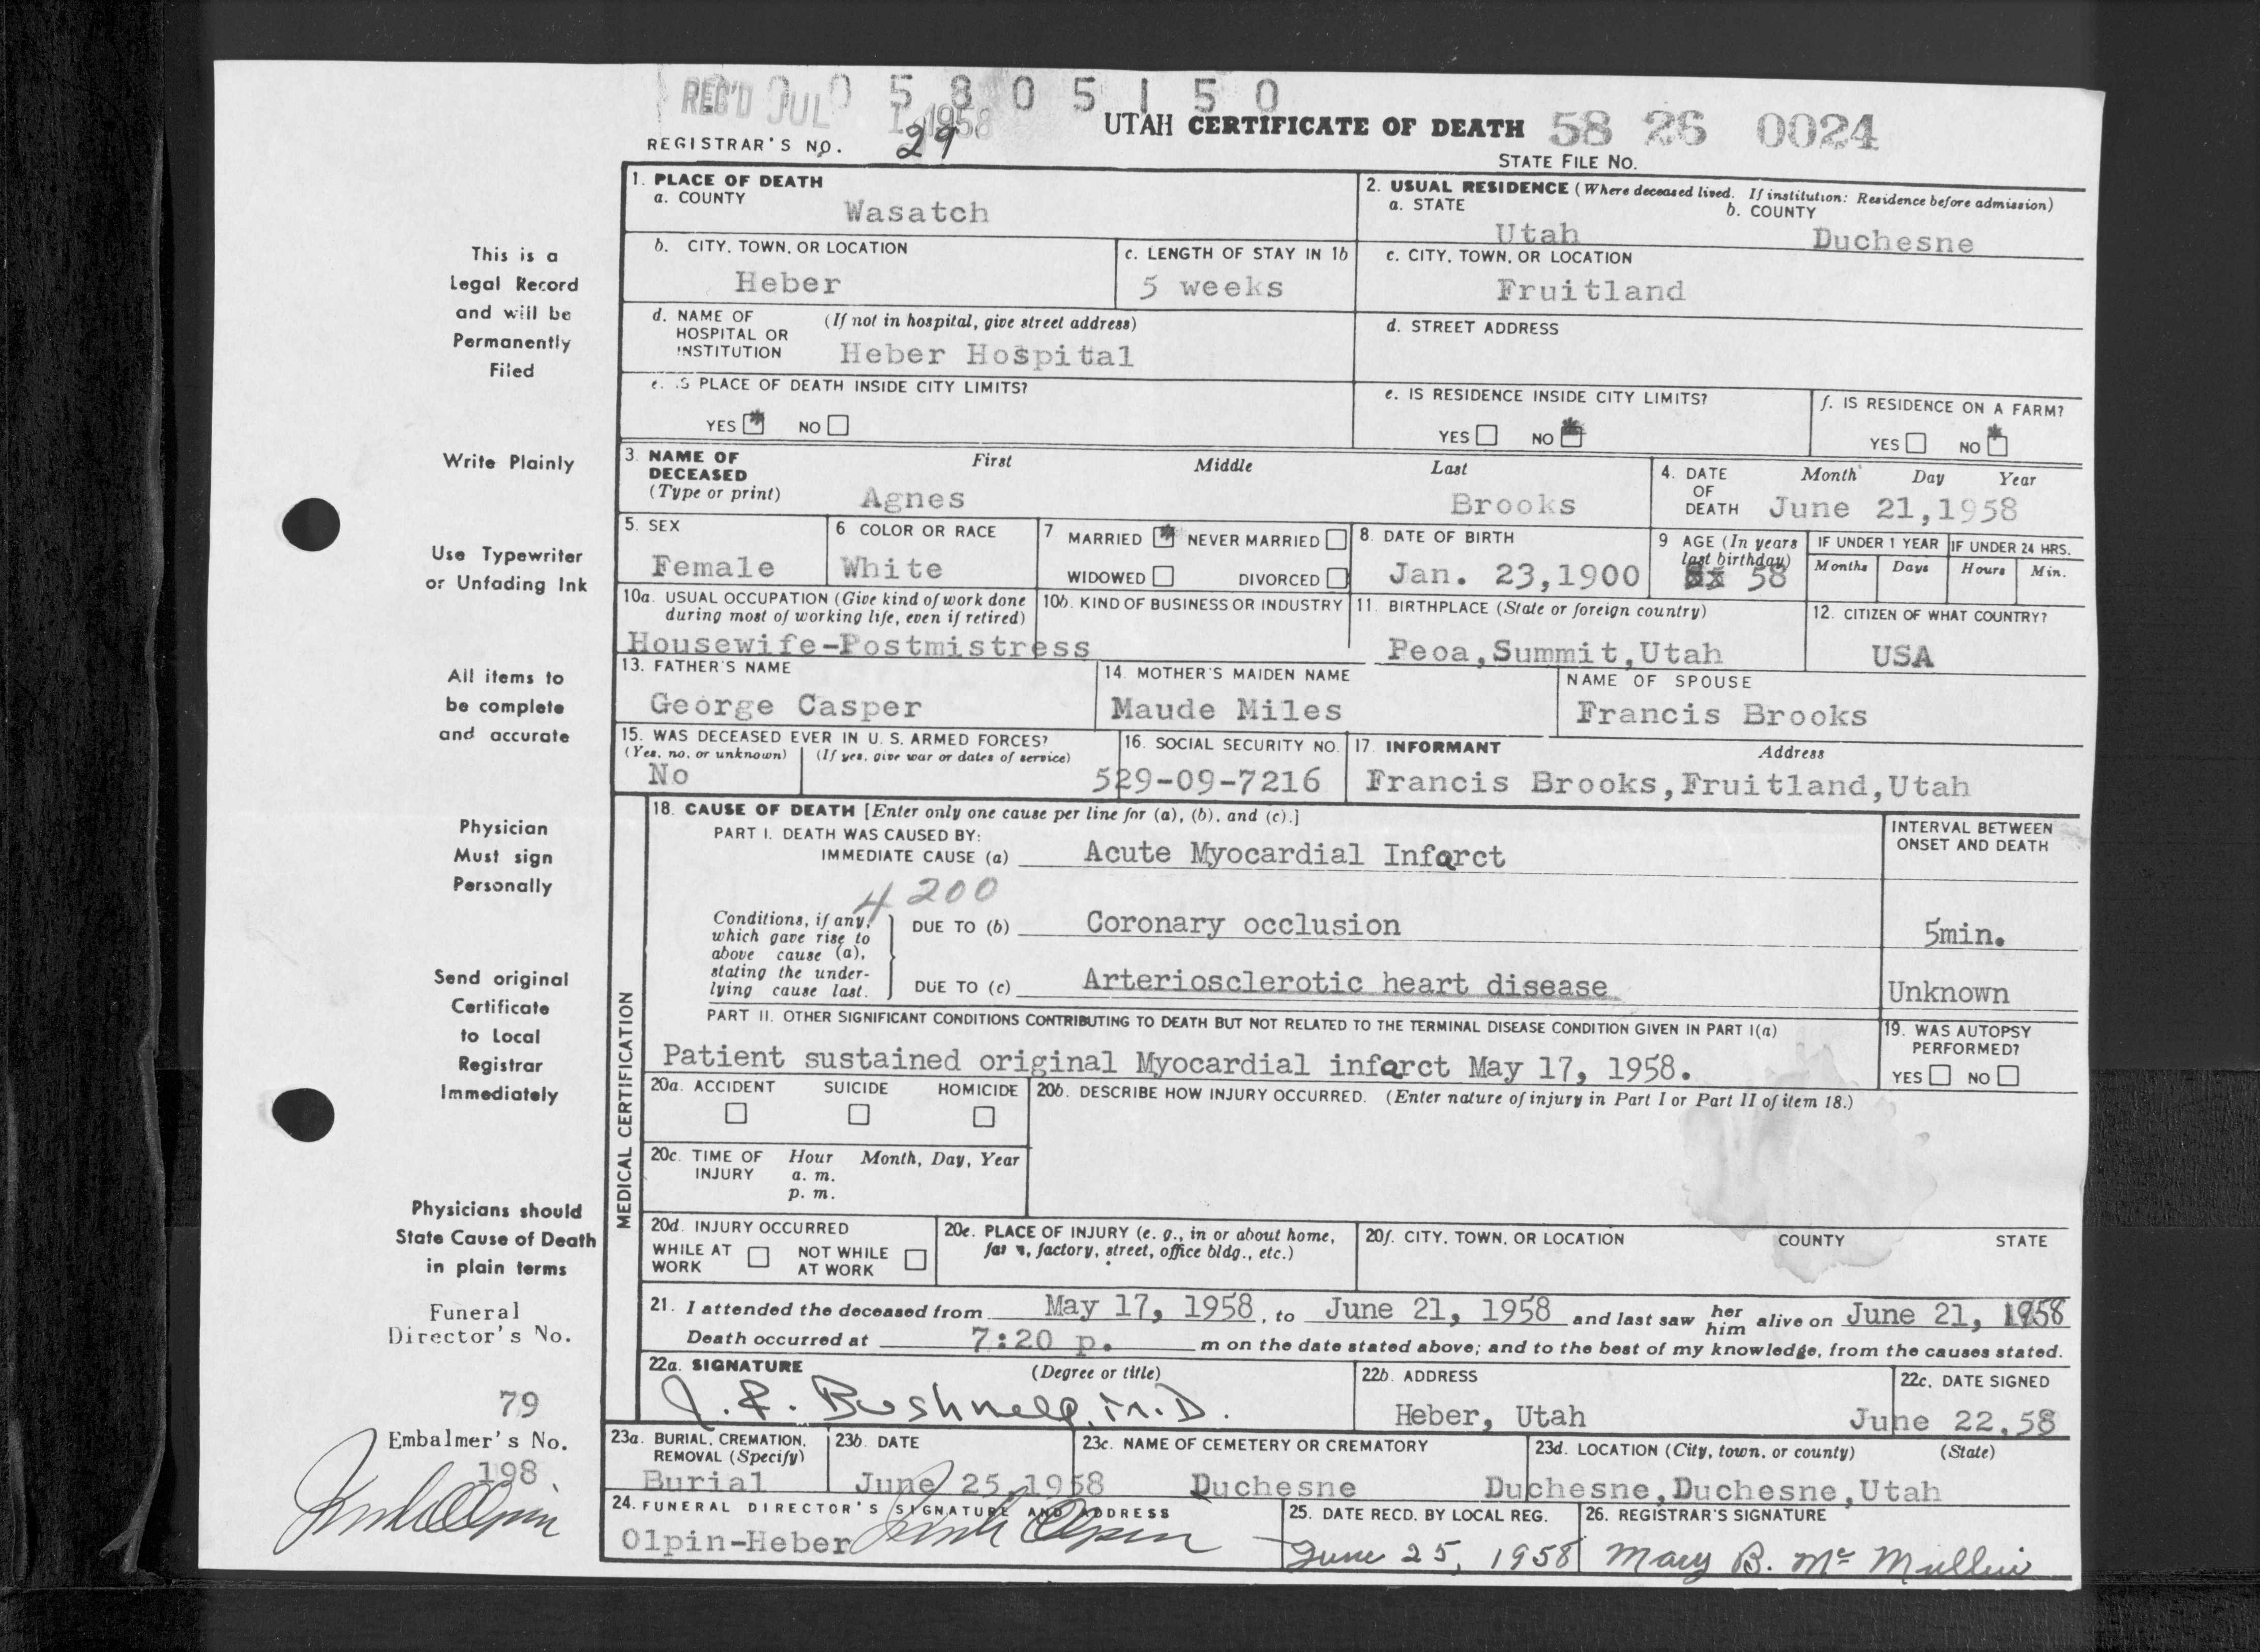 REC'D JUL 1 1958
0 0 5 8 0 5 1 5 0
REGISTRAR'S NO. 29
UTAH CERTIFICATE OF DEATH 58 26 0024
STATE FILE NO.
This is a
Legal Record
and will be
Permanently
Filed
Write Plainly
Use Typewriter
or Unfading Ink
All items to
be complete
and accurate
Physician
Must sign
Personally
Send original
Certificate
to Local
Registrar
Immediately
Physicians should
State Cause of Death
in plain terms
Funeral
Director's No.
79
Embalmer's No.
198
1. PLACE OF DEATH
a. COUNTY
Wasatch
2. USUAL RESIDENCE (Where deceased lived. If institution: Residence before admission)
a. STATE
Utah
b. COUNTY
Duchesne
b. CITY, TOWN, OR LOCATION
Heber
c. LENGTH OF STAY IN 1b
5 weeks
c. CITY, TOWN, OR LOCATION
Fruitland
d. NAME OF HOSPITAL OR INSTITUTION
(If not in hospital, give street address)
Heber Hospital
d. STREET ADDRESS
e. IS PLACE OF DEATH INSIDE CITY LIMITS?
YES NO
e. IS RESIDENCE INSIDE CITY LIMITS?
YES NO
f. IS RESIDENCE ON A FARM?
YES NO
3. NAME OF DECEASED
(Type or print)
First Middle Last
Agnes Brooks
4. DATE OF DEATH
Month Day Year
June 21,1958
5. SEX
Female
6 COLOR OR RACE
White
7 MARRIED NEVER MARRIED
WIDOWED DIVORCED
8. DATE OF BIRTH
Jan. 23,1900
9 AGE (In years last birthday)
58
IF UNDER 1 YEAR
Months Days
IF UNDER 24 HRS.
Hours Min.
10a. USUAL OCCUPATION (Give kind of work done during most of working life, even if retired)
Housewife-Postmistress
10b. KIND OF BUSINESS OR INDUSTRY
11. BIRTHPLACE (State or foreign country)
Peoa,Summit,Utah
12. CITIZEN OF WHAT COUNTRY?
USA
13. FATHER'S NAME
George Casper
14. MOTHER'S MAIDEN NAME
Maude Miles
NAME OF SPOUSE
Francis Brooks
15. WAS DECEASED EVER IN U. S. ARMED FORCES?
(Yes, no, or unknown) (If yes, give war or dates of service)
No
16. SOCIAL SECURITY NO.
529-09-7216
17. INFORMANT Address
Francis Brooks,Fruitland,Utah
MEDICAL CERTIFICATION
18. CAUSE OF DEATH [Enter only one cause per line for (a), (b), and (c).]
PART I. DEATH WAS CAUSED BY:
IMMEDIATE CAUSE (a) Acute Myocardial Infarct
INTERVAL BETWEEN ONSET AND DEATH
4200
Conditions, if any, which gave rise to above cause (a), stating the underlying cause last.
DUE TO (b) Coronary occlusion
5min.
DUE TO (c) Arteriosclerotic heart disease
Unknown
PART II. OTHER SIGNIFICANT CONDITIONS CONTRIBUTING TO DEATH BUT NOT RELATED TO THE TERMINAL DISEASE CONDITION GIVEN IN PART I(a)
Patient sustained original Myocardial infarct May 17, 1958.
19. WAS AUTOPSY PERFORMED?
YES NO
20a. ACCIDENT SUICIDE HOMICIDE
20b. DESCRIBE HOW INJURY OCCURRED. (Enter nature of injury in Part I or Part II of item 18.)
20c. TIME OF INJURY
Hour Month, Day, Year
a. m.
p. m.
20d. INJURY OCCURRED
WHILE AT WORK NOT WHILE AT WORK
20e. PLACE OF INJURY (e. g., in or about home, farm, factory, street, office bldg., etc.)
20f. CITY, TOWN, OR LOCATION COUNTY STATE
21. I attended the deceased from May 17, 1958, to June 21, 1958 and last saw her him alive on June 21, 1958
Death occurred at 7:20 p. m on the date stated above; and to the best of my knowledge, from the causes stated.
22a. SIGNATURE (Degree or title)
J. R. Bushnell, M.D.
22b. ADDRESS
Heber, Utah
22c. DATE SIGNED
June 22,58
23a. BURIAL, CREMATION, REMOVAL (Specify)
Burial
23b. DATE
June 25,1958
23c. NAME OF CEMETERY OR CREMATORY
Duchesne
23d. LOCATION (City, town, or county) (State)
Duchesne,Duchesne,Utah
24. FUNERAL DIRECTOR'S SIGNATURE AND ADDRESS
Olpin-Heber
25. DATE RECD. BY LOCAL REG.
June 25, 1958
26. REGISTRAR'S SIGNATURE
Mary B. Mc Mullin